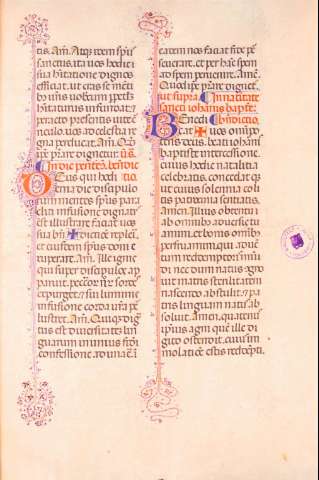 tis. Am. Atq̃ idem sp̃us
sanctus ita uos hodie sui
habitatione dignos
efficiat. ut cras se me
bium uoleum perpeti
habiturus infundat. et
peracto presentis uite cur
riculo. uos ad celestia re
gna perducat. Am. Qđ
ipse prare dignetur.
In die pentec̃. bendictio
Deus qui hodi
erna die discipulo
rum mentes sp̃us para
cliti infusione dignatus
est illustrare. faciat uos
sua bñ ✠ dictione repleri.
et eiusdem sp̃us dom̃ e
xuberare. Am. Ille ignis
qui super discipulos ap
paruit. peccatorum ur̃orum sordes
expurget. et sui luminis
infusione corda ur̃a per
lustret. Am. Quiq̃ dig
tus est diuersitatem lin
guarum in unius fidei
confessione adunare. i
catem nos faciat fide per
seuerare. et per hãc spem
ad speciem peruenire. Amen.
Quod ipse prare dignet.
ut supra. In natiuitate
sancti iohãnis bapiste.
Benedi Bendictio.
cat ✠ uos omnipo
tens deus. beati iohãnis
baptiste intercessione.
cuius hodie natalitia
celebratis. concedat q̃
ut cuius solemnia coli
tis patrocinia sentiatis.
Amen. Illius obtentu
ab omnibus aduersis tu
amini. et bonis omnibus
perfruamini. qui aduen
tum redemptoris mun
di nec dum natus cogno
uit. matris sterilitatem
nascendo abstulit. et pa
tris linguam natus ab
soluit. Amen. quatenus
ipsius agni quem ille di
gito ostendit. cuius im
molatione estis redempti.